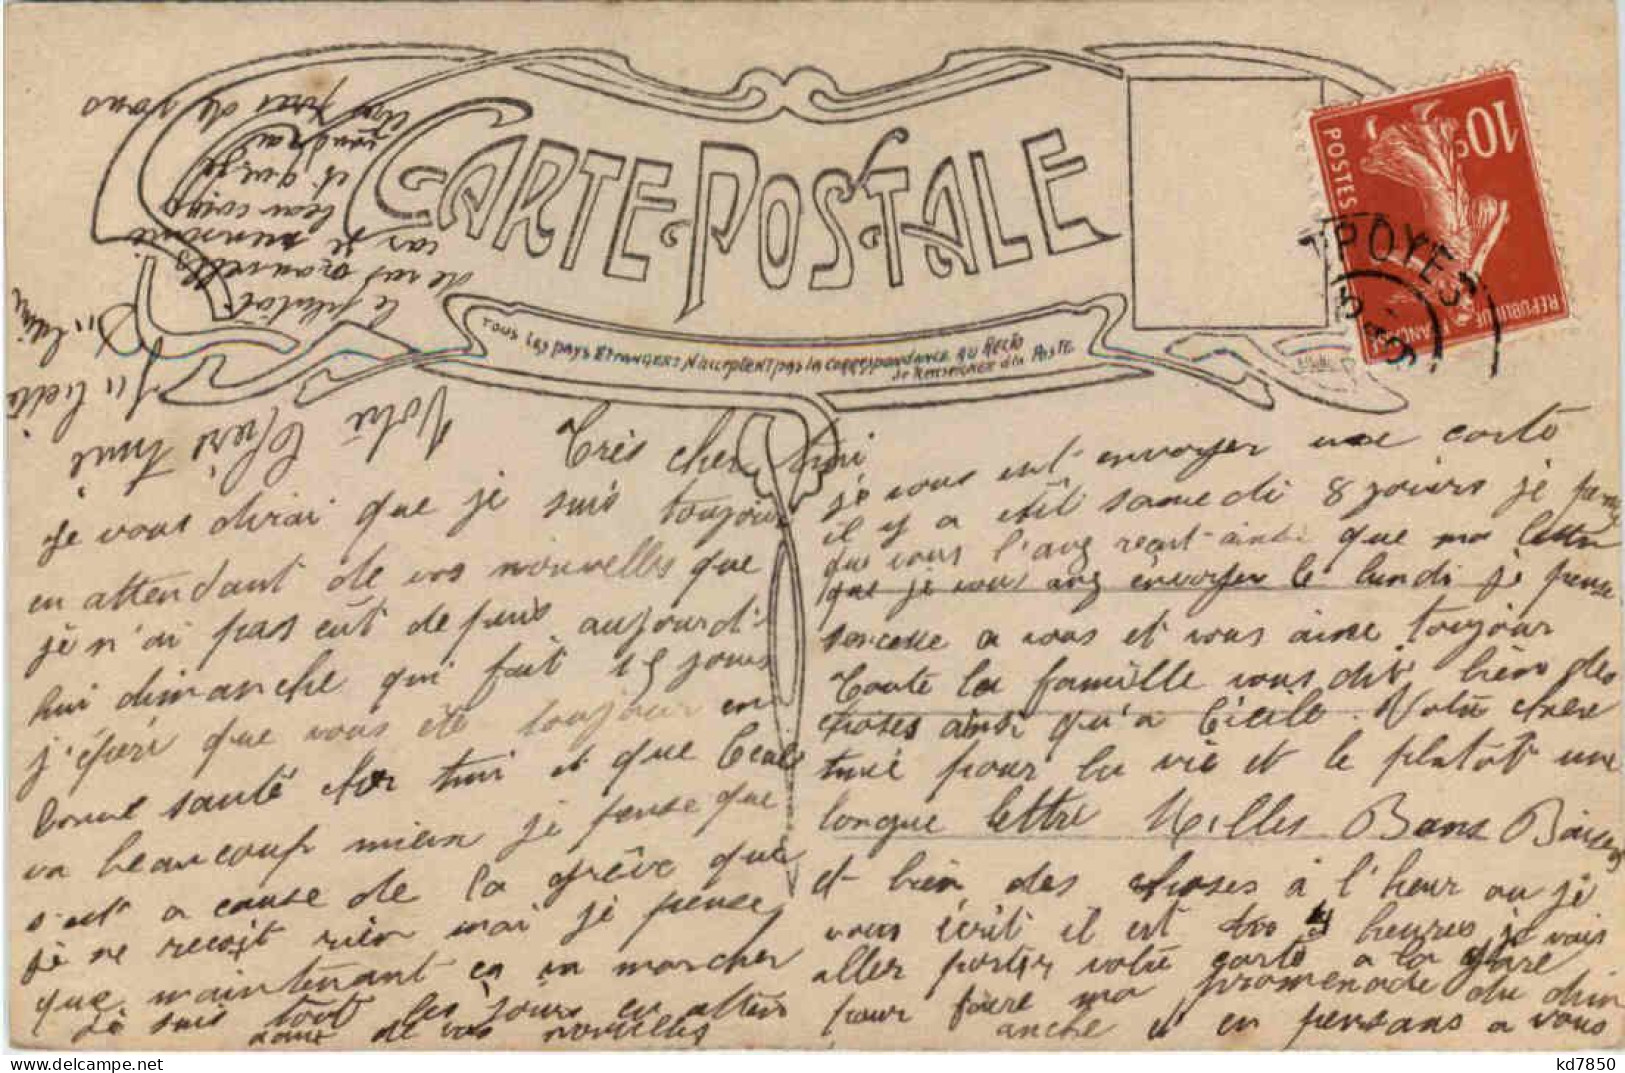 CARTE POSTALE
TOUS LES PAYS ETRANGERS N'ACCEPTENT PAS LA CORRESPONDANCE AU RECTO
SE RENSEIGNER à la POSTE
10c
POSTES
REPUBLIQUE FRANÇAISE
TROYES
Très cher
je vous dirai que je suis toujour
en attendant de vos nouvelles que
je n'ai pas eût depuis aujourd-
hui dimanche qui fait 15 jours
j'éperè que vous ète toujour en
bonne santé cher et que Cecile
va beaucoup mieux je pense que
s'est a cause de la grève que
je ne reçoit rien mai je pense
que maintenant ça va marcher
je suis tout les jours en atten
dant de vos nouvelles
je vous est envoyer une carte
il y a samedi 8 jours je pense
que vous l'avez reçut ainsi que ma lettre
que je vous avez envoyer le lundi je pense
sancesse a vous et vous aime toujour
Toute la famille vous dit bien des
choses ainsi qu'a Cicile. Votre chere
pour la vie et le plutôt une
longue lettre Milles Bons Baisers
et bien des choses à l'heur ou je
vous écrit il est heures je vais
aller poster votre carte a la gare
pour faire ma promenade du dim
anche en pensans a vous
le plutôt
de vos nouvelles
car je mensuuie
beau coup
et que je
voudrai
être près de vous
Votre
Chère
kd7850